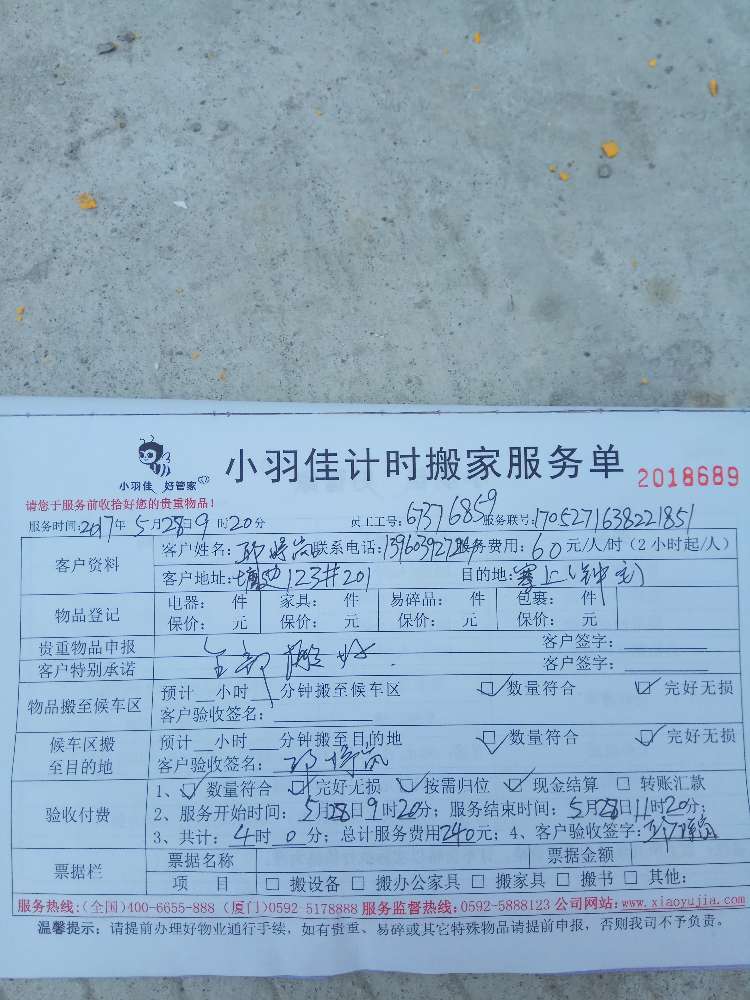 小羽佳 好管家
小羽佳计时搬家服务单 2018689
请您于服务前收拾好您的贵重物品！
服务时间：2017年5月28日9时20分 员工工号：67376859 服务联号：1705271638221851
客户资料 客户姓名： 联系电话： 服务费用：60元/人/时（2小时起/人）
客户地址： 123#201 目的地：
物品登记 电器： 件 家具： 件 易碎品： 件 包裹： 件
保价： 元 保价： 元 保价： 元 保价： 元
贵重物品申报 客户签字：
客户特别承诺 客户签字：
物品搬至候车区 预计__小时__分钟搬至候车区 ☑数量符合 ☑完好无损
客户验收签名：
候车区搬至目的地 预计__小时__分钟搬至目的地 ☑数量符合 ☑完好无损
客户验收签名：
验收付费 1、☑数量符合 ☑完好无损 ☑按需归位 ☑现金结算 □转账汇款
2、服务开始时间：5月28日9时20分；服务结束时间：5月28日11时20分；
3、共计：4时0分；总计服务费用240元；4、客户验收签字：
票据栏 票据名称 票据金额
项目 □搬设备 □搬办公家具 □搬家具 □搬书 □其他：
服务热线：(全国)400-6655-888 (厦门)0592-5178888 服务监督热线：0592-5888123 公司网站：www.xiaoyujia.com
温馨提示：请提前办理好物业通行手续，如有贵重、易碎或其它特殊物品请提前申报，否则我司不予负责。